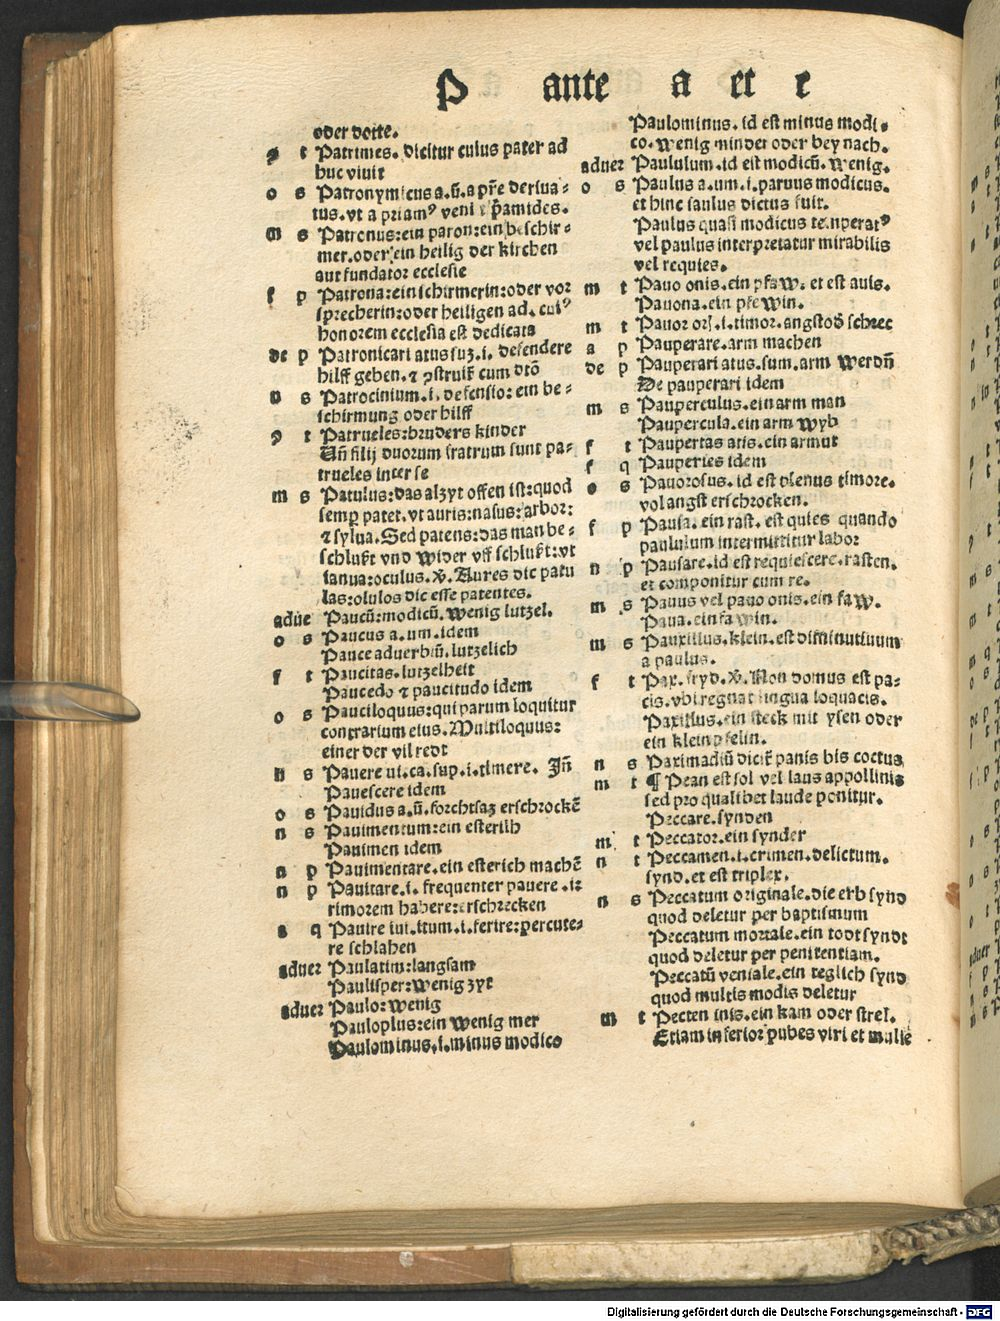 P ante a et e
oder dotte.
ꝯ t Patrimes. dicitur cuius pater ad
huc viuit
o s Patronymicus a. ū. a pr̄e deriua⸗
tus. vt a priamꝰ veni t p̄amides.
m s Patronus: ein patron: ein beschir⸗
mer. oder ein heilig der kirchen
aut fundator ecclesie
f p Patrona: ein schirmerin: oder vor
sprecherin: oder heiligen ad. cuiꝰ
honorem ecclesia est dedicata
de p Patronicari atus suꝫ. i. defendere
hilff geben. ⁊ ꝯstruit̄ cum dtō
n s Patrocinium. i. defensio: ein be⸗
schirmung oder hilff
ꝯ t Patrueles: bruders kinder
Uñ filij duorum fratrum sunt pa⸗
trueles inter se
m s Patulus: das alzyt offen ist: quod
semꝑ patet. vt auris: nasus: arbor:
⁊ sylua. Sed patens: das man be⸗
schlußt vnd wider vff schlußt: vt
ianua: oculus. v̄. Aures dic patu
las: olulos dic esse patentes.
adue Paucū: modicū. wenig lutzel.
o s Paucus a. um. idem
Pauce aduerbiū. lutzelich
f t Paucitas. lutzelheit
Paucedo ⁊ paucitudo idem
o s Pauciloquus: qui parum loquitur
contrarium eius. Multiloquus:
einer der vil redt
n s Pauere ui. ca. sup. i. timere. Iñ
Pauescere idem
o s Pauidus a. ū. forchtsaꝫ erschrockē
n s Pauimentum: ein esterih
Pauimen idem
n p Pauimentare. ein esterich machē
n p Pauitare. i. frequenter pauere. iꝛ
timorem habere: erschrecken
a q Pauire iui. itum. i. ferire: percute⸗
re schlahen
aduer Paulatim: langsam
Paulisper: wenig zyt
aduer Paulo: wenig
Pauloplus: ein wenig mer
Paulominus. i. minus modico
Paulominus. id est minus modi⸗
co. wenig minder oder bey nach.
aduer Paululum. id est modicū. wenig.
o s Paulus a. um. i. paruus modicus.
et hinc saulus dictus fuit.
Paulus quasi modicus temperatꝰ
vel paulus interpretatur mirabilis
vel requies.
m t Pauo onis. ein pfaw. et est auis.
Pauona. ein pfewin.
m t Pauor oris. i. timor. angst oď schrec
a p Pauperare. arm machen
de p Pauperari atus. sum. arm werdñ
De pauperari idem
m s Pauperculus. ein arm man
Paupercula. ein arm wyb
f t Paupertas atis. ein armut
f q Pauperies idem
o s Pauorosus. id est plenus timore.
vol angst erschrocken.
f p Pausa. ein rast. est quies quando
paululum intermittitur labor
n p Pausare. id est requiescere. rasten.
et componitur cum re.
m s Pauus vel pauo onis. ein faw.
Paua. ein fawin.
m s Pauxillus. klein. est diminutiuum
a paulus.
f t Pax. fryd. v̄. Non domus est pa⸗
cis. vbi regnat lingua loquacis.
Paxillus. ein steck mit ysen oder
ein klein pfelin.
n s Paximadiū dicit̄ panis bis coctus
m t ¶ Pean est sol vel laus appollinis
sed pro qualibet laude ponitur.
Peccare. synden
m t Peccator. ein synder
n t Peccamen. i. crimen. delictum.
synd. et est triplex.
n s Peccatum originale. die erb synd
quod deletur per baptismum
Peccatum mortale. ein todt synde
quod deletur per penitentiam.
Peccatū veniale. ein teglich synd
quod multis modis deletur
m t Pecten inis. ein kam oder strel.
Etiam inferior pubes viri et mulie
Digitalisierung gefördert durch die Deutsche Forschungsgemeinschaft - DFG